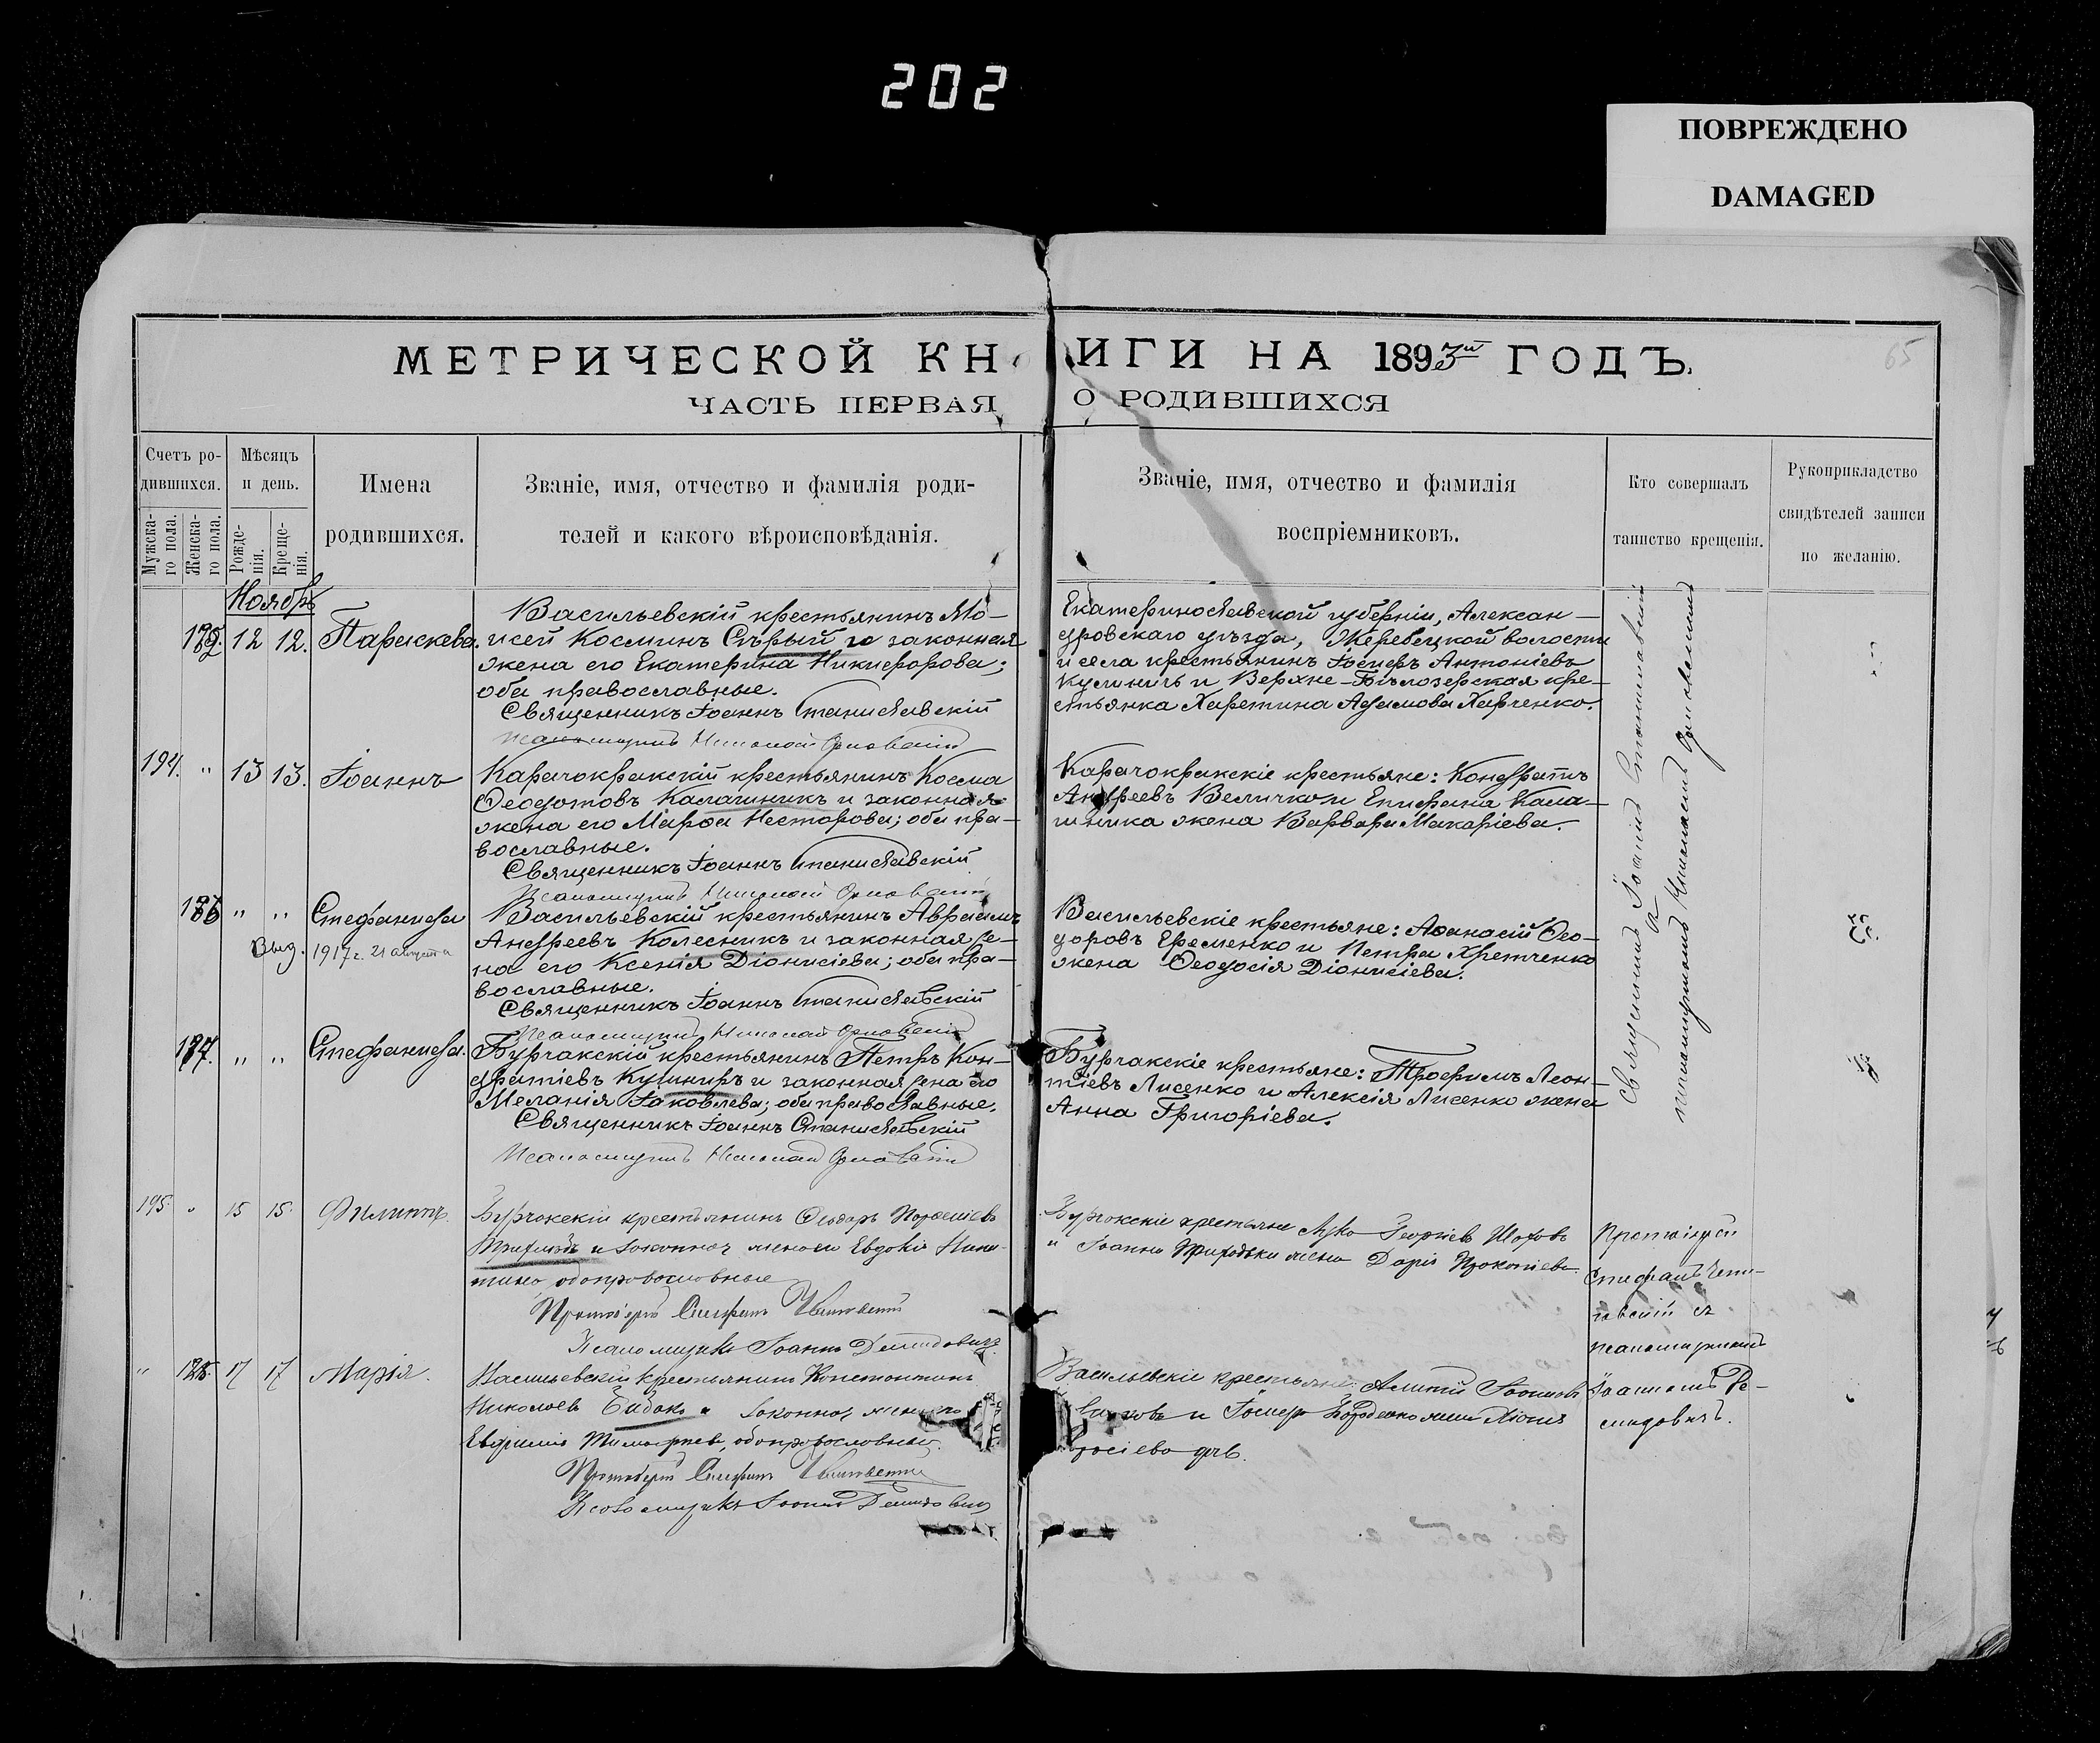 202
ПОВРЕЖДЕНО
DAMAGED
65
МЕТРИЧЕСКОЙ КНИГИ НА 1893й ГОДЪ.
ЧАСТЬ ПЕРВАЯ О РОДИВШИХСЯ
Счетъ ро-
дившихся.
Мужска-
го пола.
Женска-
го пола.
Мѣсяцъ
и день.
Рожде-
нія.
Креще-
нія.
Имена
родившихся.
Званіе, имя, отчество и фамилія роди-
телей и какого вѣроисповѣданія.
Званіе, имя, отчество и фамилія
воспріемниковъ.
Кто совершалъ
таинство крещенія.
Рукоприкладство
свидѣтелей записи
по желанію.
Ноябрь
12 12. Параскева.
Васильевскій крестьянинъ Мо-
исей Косминъ Сѣрый и законная
жена его Екатерина Никифорова;
оба православные.
Священникъ Іоаннъ Станиславскій
Псаломщикъ Николай
Екатеринославской губерніи, Алексан-
дровскаго уѣзда, Жеребецкой волости
и села крестьянинъ Іосифъ Антоніевъ
Кулиничъ и Верхне-Бѣлозерская кре-
стьянка Харетина Адамова Харченко.
194. " 13 13. Іоаннъ
Карачокракскій крестьянинъ Косма
Ѳеодотовъ Калашникъ и законная
жена его Марѳа Несторова; оба пра-
вославные.
Священникъ Іоаннъ Станиславскій
Псаломщикъ Николай
Карачокракскіе крестьяне: Кондратъ
Андреевъ Величко и Епифана Кала-
шника жена Варвара Макаріева.
186 " " Стефанида
Выд. 1917 г. 21 августа
Васильевскій крестьянинъ Авраамъ
Андреевъ Колесникъ и законная же-
на его Ксенія Діонисіева; оба пра-
вославные.
Священникъ Іоаннъ Станиславскій
Псаломщикъ Николай
Васильевскіе крестьяне: Аѳанасій Ѳео-
доровъ Еременко и Петра Хретченко
жена Ѳеодосія Діонисіева.
187. " " Стефанида.
Бурчакскій крестьянинъ Петръ Кон-
дратіевъ Кушниръ и законная жена его
Меланія Іаковлева; оба православные.
Священникъ Іоаннъ Станиславскій
Псаломщикъ Николай
Бурчакскіе крестьяне: Трофимъ Леон-
тіевъ Лисенко и Алексія Лисенко жена
Анна Григоріева.
Священникъ Іоаннъ Станиславскій
съ
псаломщикомъ Николаемъ
195. " 15 15. Филиппъ.
Бурчакскій крестьянинъ Ѳеодоръ
и законная жена его Евдокія Ники-
тина оба православные
Протоіерей Стефанъ
Псаломщикъ Іоаннъ Демидовичъ.
Бурчакскіе крестьяне Лука Георгіевъ Шаховъ
и Іоанна жена Дарія Прокопіева.
Протоіерей
Стефанъ
съ
псаломщикомъ
Іоанномъ Де-
мидовичъ.
" 17 17 Марія.
Васильевскій крестьянинъ Константинъ
Николаевъ Бидакъ и законная жена его
Евфимія оба православные.
Протоіерей Стефанъ
Псаломщикъ Іоаннъ Демидовичъ
Васильевскіе крестьяне: